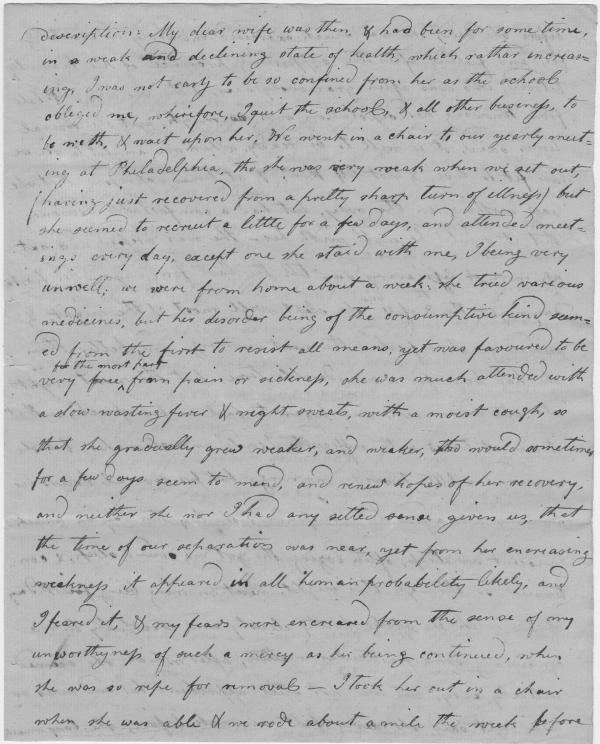 description: My dear wife was then & had been for some time,
in a weak and declining state of health, which rathar increas=
ing, I was not easy to be so confined from her as the school
obliged me, wherefore, I quit the school, & all other business, to
be with, & wait upon her. We went in a chair to our yearly meet=
ing at Philadelphia, tho she was very weak when we set out,
(having just recovered from a pretty sharp turn of illness) but
she seemed to recruit a little for a few days, and attended meet=
ings every day, except one she staid with me, I being very
unwell; we were from home about a week: she tried various
medicines, but her disorder being of the consumptive kind seem=
ed from the first to resist all means, yet was favoured to be
for the most part
very free from pain or sickness, she was much attended with
a slow wasting fever & night sweats, with a moist cough, so
that she gradually grew weaker, and weaker, tho would sometimes
for a few days seem to mend, and renew hopes of her recovery,
and neither she nor I had any setled sense given us, that
the time of our separation was near, yet from her encreasing
weakness it appeared in all human probability likely, and
I feared it, & my fears were encreased from the sense of my
unworthyness of such a mercy as her being continued, when
she was so ripe for removals — I took her out in a chair
when she was able & we rode about a mile the week before